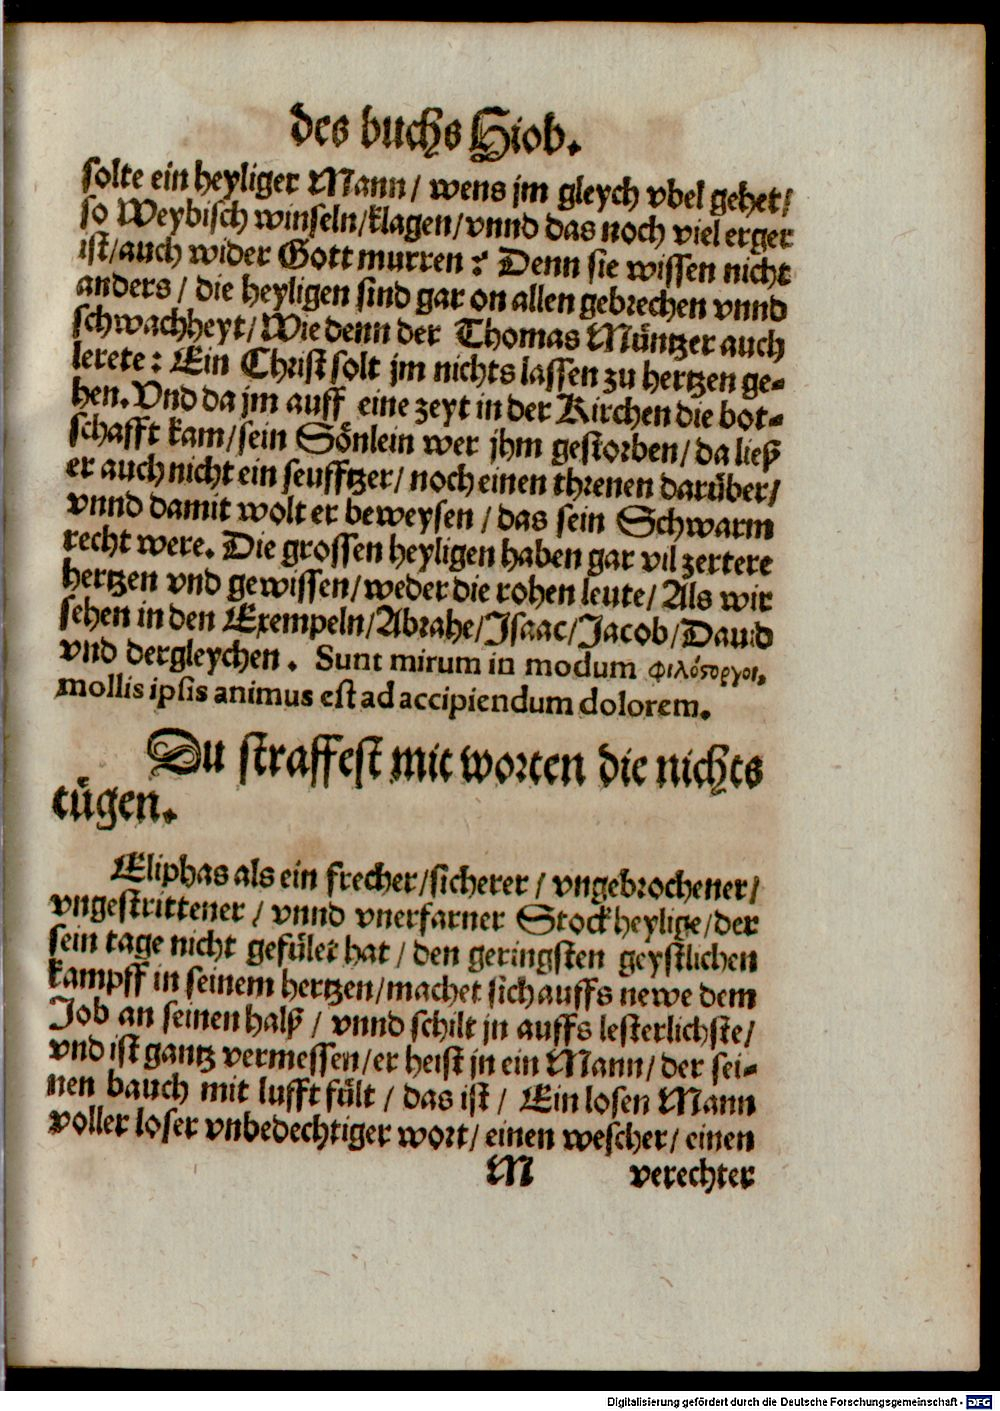 des buchs Hiob.
solte ein heyliger Mann / wens jm gleych vbel gehet /
so Weybisch winseln / klagen / vnnd das noch viel erger
ist / auch wider Gott murren ? Denn sie wissen nicht
anders / die heyligen sind gar on allen gebrechen vnnd
schwachheyt / Wie denn der Thomas Müntzer auch
lerete : Ein Christ solt jm nichts lassen zu hertzen ge-
hen. Vnd da jm auff eine zeyt in der Kirchen die bot-
schafft kam / sein Sönlein wer jhm gestorben / da ließ
er auch nicht ein seufftzer / noch einen threnen darüber /
vnnd damit wolt er beweysen / das sein Schwarm
recht were. Die grossen heyligen haben gar vil zertere
hertzen vnd gewissen / weder die rohen leute / Als wir
sehen in den Exempeln / Abrahe / Isaac / Jacob / Dauid
vnd dergleychen . Sunt mirum in modum φιλόςοργοι,
mollis ipsis animus est ad accipiendum dolorem.
Du straffest mit worten die nichts
tügen.
Eliphas als ein frecher / sicherer / vngebrochener /
vngestrittener / vnnd vnerfarner Stockheylige / der
sein tage nicht gefület hat / den geringsten geystlichen
kampff in seinem hertzen / machet sich auffs newe dem
Job an seinen halß / vnnd schilt jn auffs lesterlichste /
vnd ist gantz vermessen / er heist jn ein Mann / der sei-
nen bauch mit lufft fült / das ist / Ein losen Mann
voller loser vnbedechtiger wort / einen wescher / einen
M verechter
Digitalisierung gefördert durch die Deutsche Forschungsgemeinschaft - DFG